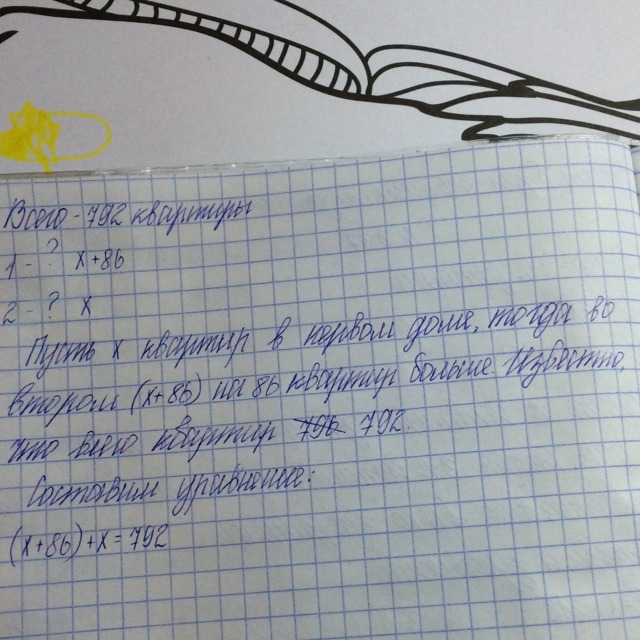 Всего - 792 квартиры
1 - ? x+86
2 - ? x
Пусть x квартир в первом доме, тогда во
втором (x+86) на 86 квартир больше. Известно,
что всего квартир 796 792.
Составим уравнение:
(x+86)+x=792